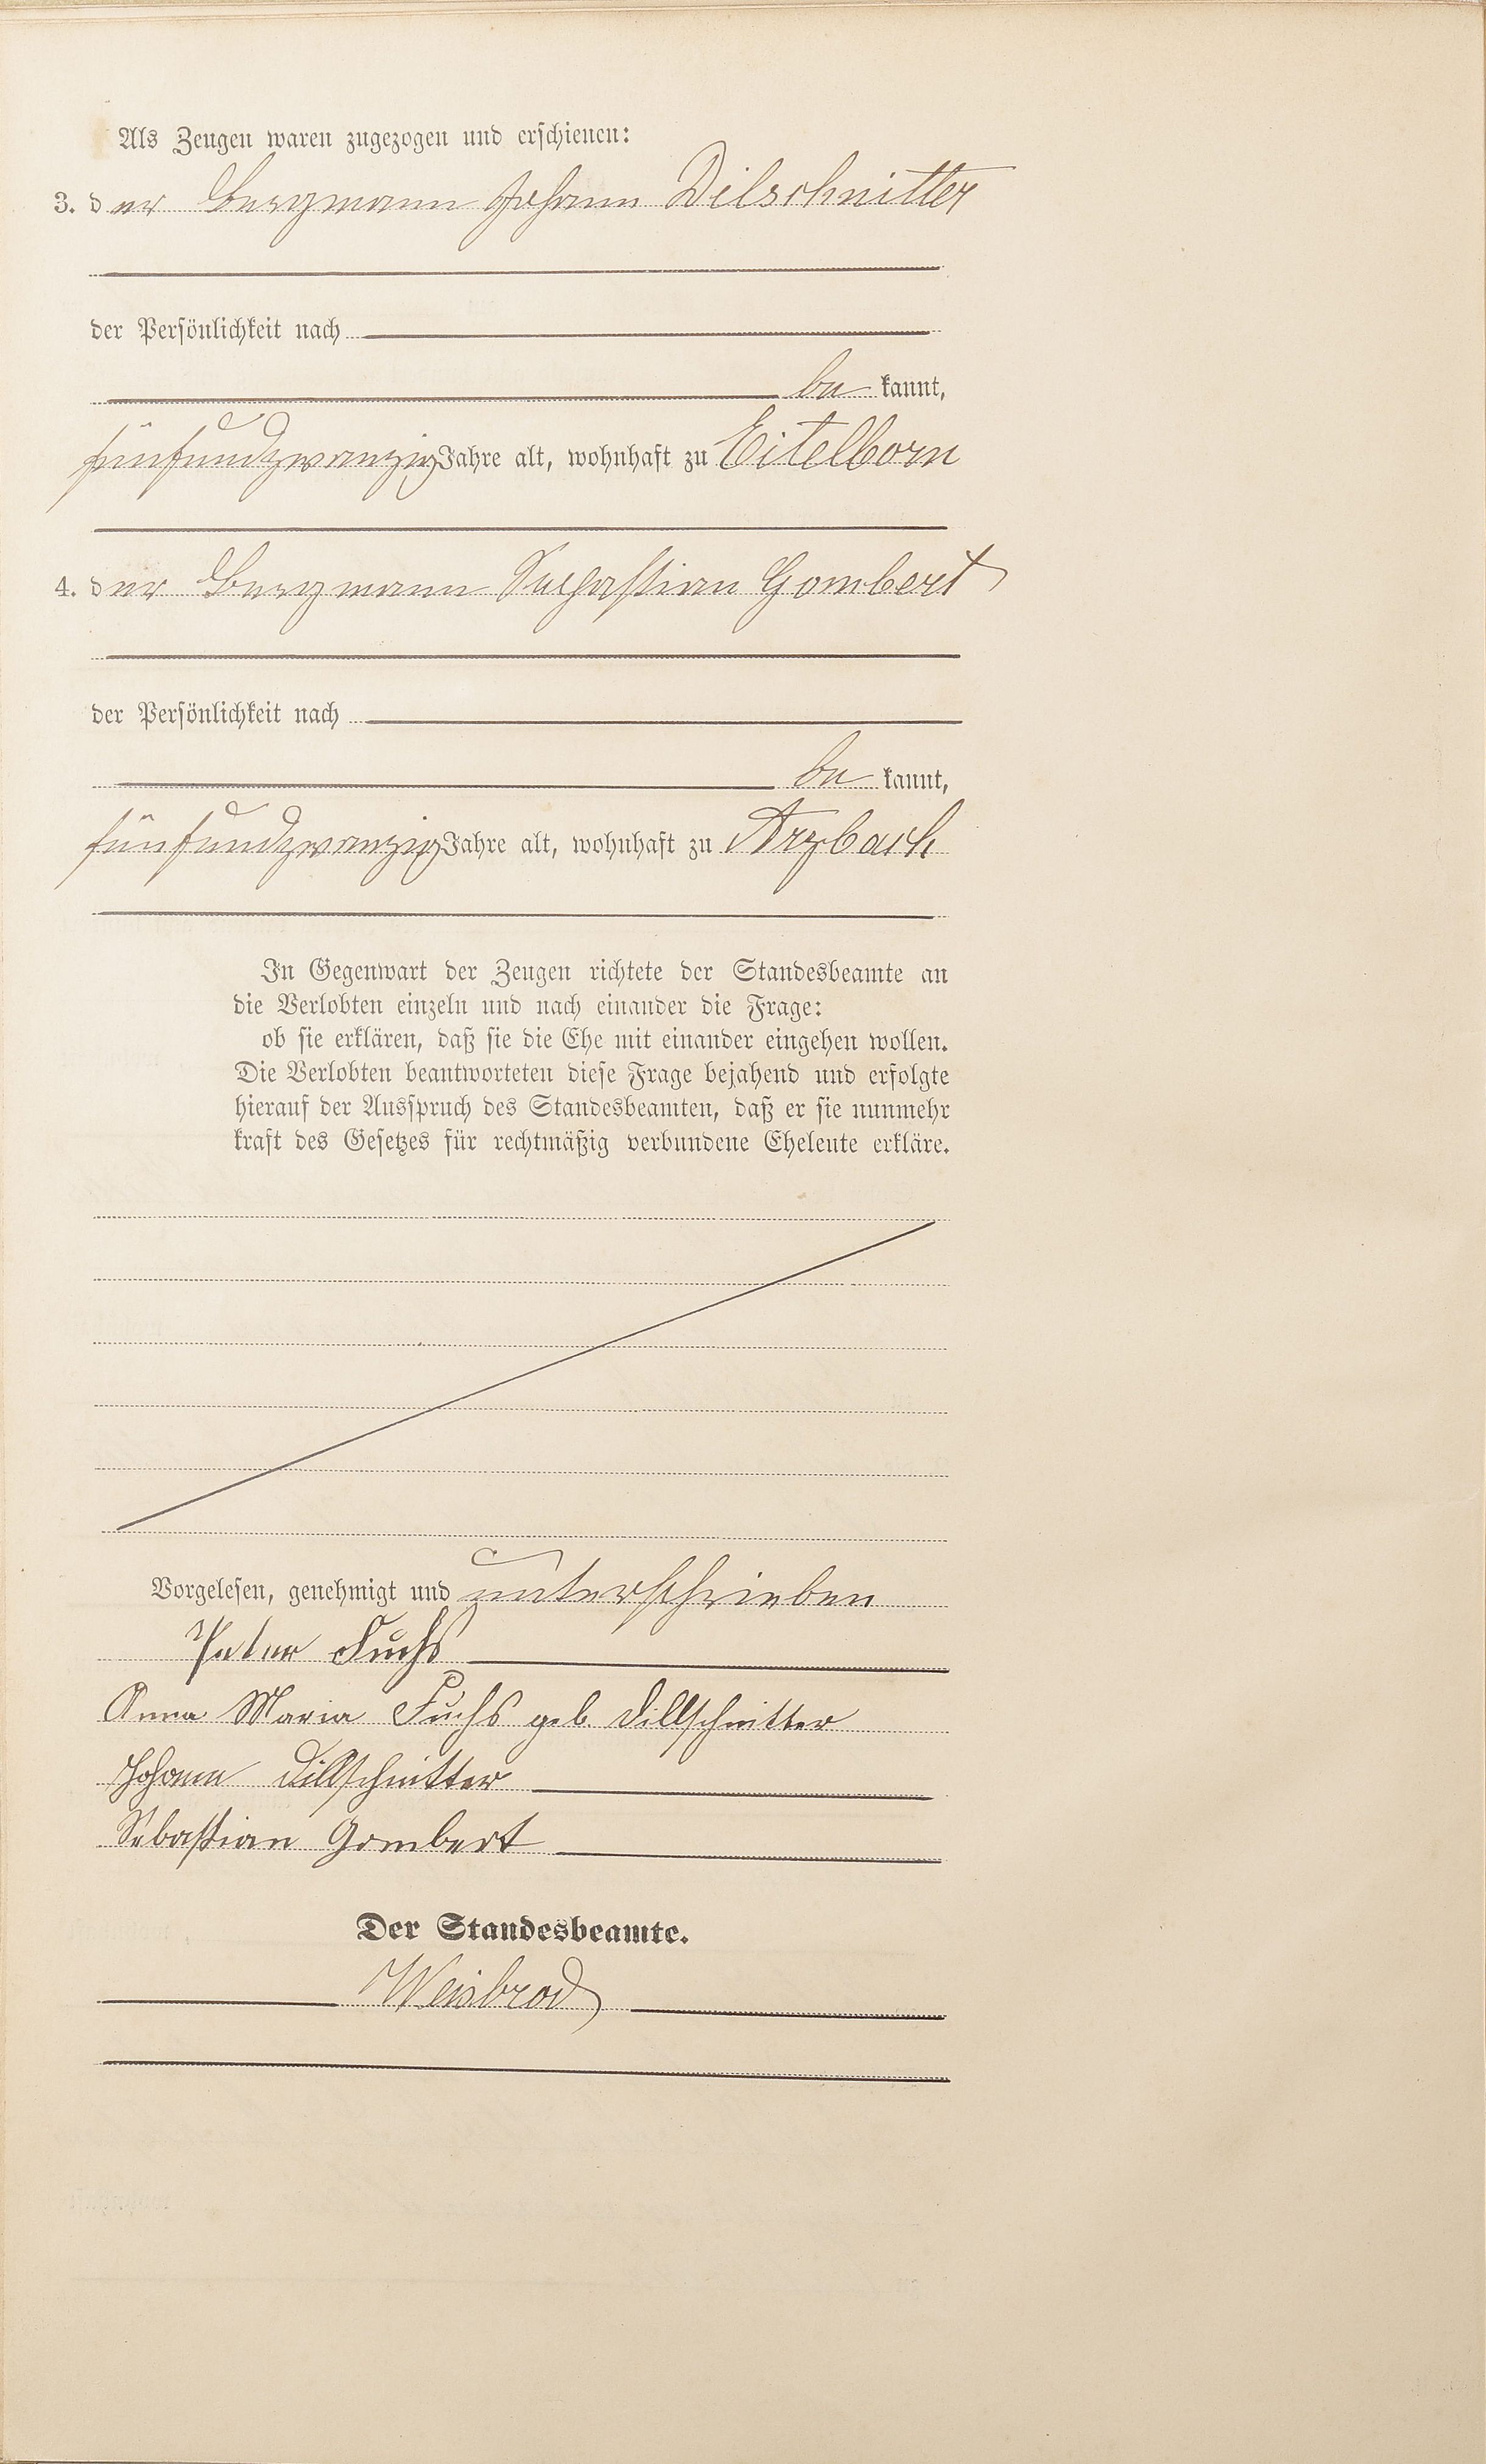 Als Zeugen waren zugezogen und erschienen:
3. der Bergmann Johann Dilschnitter
der Persönlichkeit nach
be kannt,
fünfundzwanzig Jahre alt, wohnhaft zu Eitelborn
4. der Bergmann Sebastian Gombert
der Persönlichkeit nach
be kannt,
fünfundzwanzig Jahre alt, wohnhaft zu Arzbach
In Gegenwart der Zeugen richtete der Standesbeamte an
die Verlobten einzeln und nach einander die Frage:
ob sie erklären, daß sie die Ehe mit einander eingehen wollen.
Die Verlobten beantworteten diese Frage bejahend und erfolgte
hierauf der Ausspruch des Standesbeamten, daß er sie nunmehr
kraft des Gesetzes für rechtmäßig verbundene Eheleute erkläre.
Vorgelesen, genehmigt und unterschrieben
Peter Fuchs
Anna Maria Fuchs geb. Dillschnitter
Johann Dillschnitter
Sebastian Gombert
Der Standesbeamte.
Weisbrod